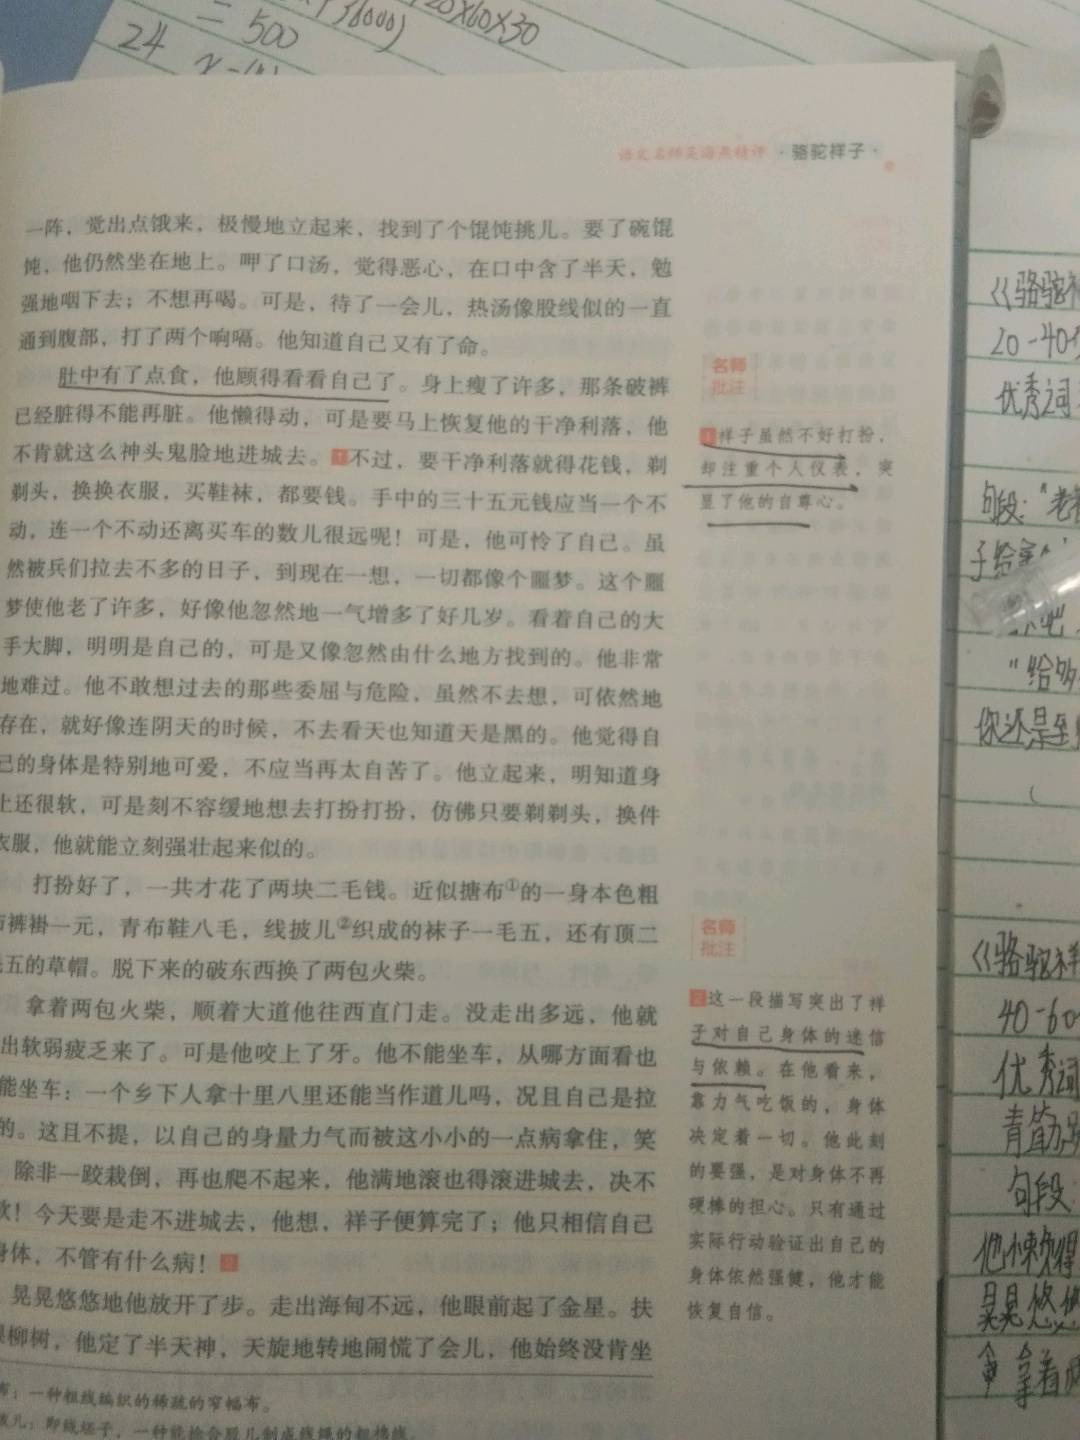 =500
20×60×30
24
语文名师吴海燕精评 ·骆驼祥子·
一阵，觉出点饿来，极慢地立起来，找到了个馄饨挑儿。要了碗馄
饨，他仍然坐在地上。呷了口汤，觉得恶心，在口中含了半天，勉
强地咽下去；不想再喝。可是，待了一会儿，热汤像股线似的一直
通到腹部，打了两个响嗝。他知道自己又有了命。
肚中有了点食，他顾得看看自己了。身上瘦了许多，那条破裤
已经脏得不能再脏。他懒得动，可是要马上恢复他的干净利落，他
不肯就这么神头鬼脸地进城去。1不过，要干净利落就得花钱，剃
剃头，换换衣服，买鞋袜，都要钱。手中的三十五元钱应当一个不
动，连一个不动还离买车的数儿很远呢！可是，他可怜了自己。虽
然被兵们拉去不多的日子，到现在一想，一切都像个噩梦。这个噩
梦使他老了许多，好像他忽然地一气增多了好几岁。看着自己的大
手大脚，明明是自己的，可是又像忽然由什么地方找到的。他非常
地难过。他不敢想过去的那些委屈与危险，虽然不去想，可依然地
存在，就好像连阴天的时候，不去看天也知道天是黑的。他觉得自
己的身体是特别地可爱，不应当再太自苦了。他立起来，明知道身
上还很软，可是刻不容缓地想去打扮打扮，仿佛只要剃剃头，换件
衣服，他就能立刻强壮起来似的。
打扮好了，一共才花了两块二毛钱。近似搪布①的一身本色粗
布裤褂一元，青布鞋八毛，线披儿②织成的袜子一毛五，还有顶二
毛五的草帽。脱下来的破东西换了两包火柴。
拿着两包火柴，顺着大道他往西直门走。没走出多远，他就
出软弱疲乏来了。可是他咬上了牙。他不能坐车，从哪方面看也
能坐车：一个乡下人拿十里八里还能当作道儿吗，况且自己是拉
的。这且不提，以自己的身量力气而被这小小的一点病拿住，笑
除非一跤栽倒，再也爬不起来，他满地滚也得滚进城去，决不
软！今天要是走不进城去，他想，祥子便算完了；他只相信自己
身体，不管有什么病！2
晃晃悠悠地他放开了步。走出海甸不远，他眼前起了金星。扶
棵柳树，他定了半天神，天旋地转地闹慌了会儿，他始终没肯坐
布：一种粗线编织的稀疏的窄幅布。
名师
批注
1祥子虽然不好打扮，
却注重个人仪表，突
显了他的自尊心。
名师
批注
2这一段描写突出了祥
子对自己身体的迷信
与依赖。在他看来，
靠力气吃饭的，身体
决定着一切。他此刻
的要强，是对身体不再
硬棒的担心。只有通过
实际行动验证出自己的
身体依然强健，他才能
恢复自信。
《骆驼祥
20-40
优秀词
句段："老
子给
"给够
你还是至
《骆驼祥
40-60
优秀词
青筋
句段
他懒得
晃晃悠悠
拿着